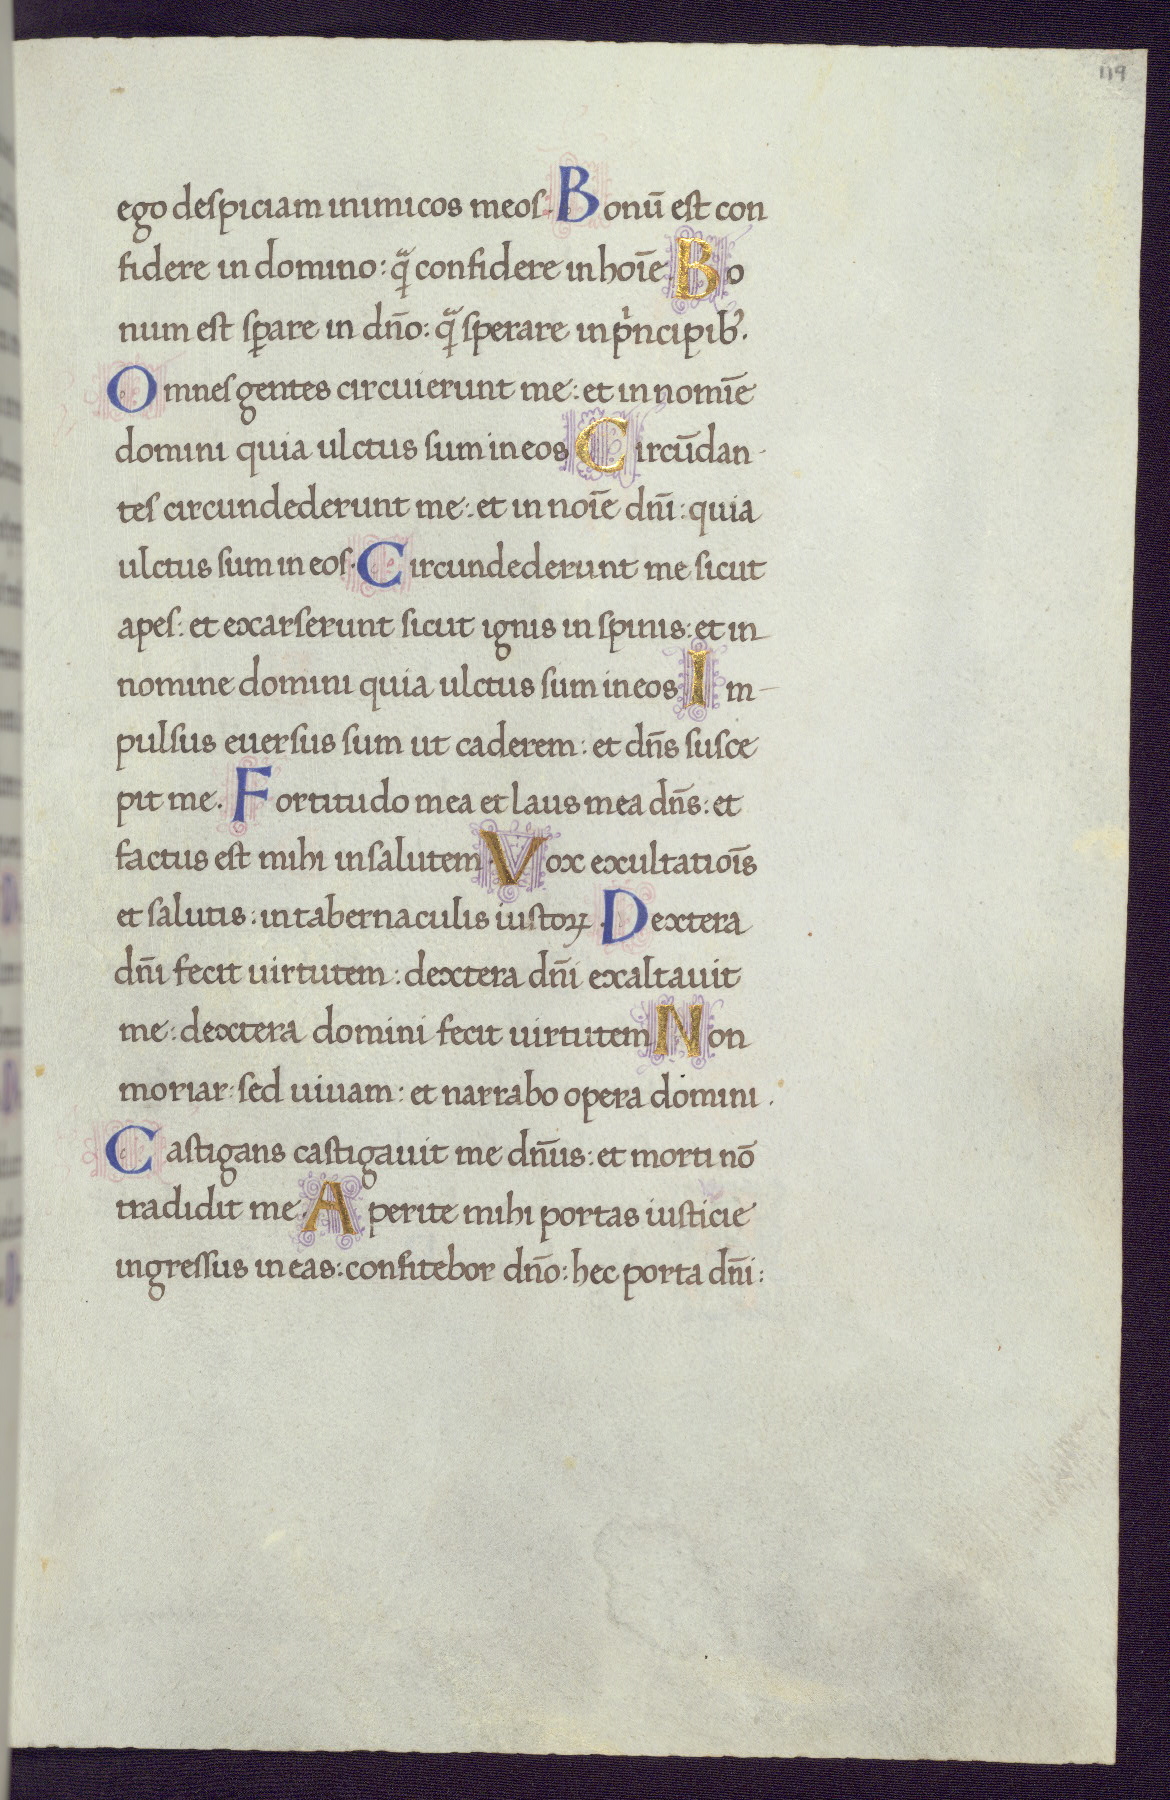 119
ego despiciam inimicos meos. Bonū est con
fidere in domino: q̄ȝ confidere in hoīe Bo
num est sꝑare in dn̄o: q̄ȝ sperare in pͥncipib.
Omnes gentes circuierunt me: et in nomīe
domini quia ulctus sum in eos Circūdan
tes circundederunt me: et in noīe dn̄i: quia
ulctus sum in eos. Circundederunt me sicut
apes: et exarserunt sicut ignis in spinis: et in
nomine domini quia ulctus sum in eos Im-
pulsus euersus sum ut caderem: et dn̄s susce
pit me. Fortitudo mea et laus mea dn̄s: et
factus est mihi in salutem. Vox exultatiōis
et salutis: in tabernaculis iustoꝝ. Dextera
dn̄i fecit uirtutem: dextera dn̄i exaltauit
me: dextera domini fecit uirtutem Non
moriar: sed uiuam: et narrabo opera domini.
Castigans castigauit me dn̄us: et morti nō
tradidit me. Aperite mihi portas iusticie
ingressus in eas: confitebor dn̄o: hec porta dn̄i: